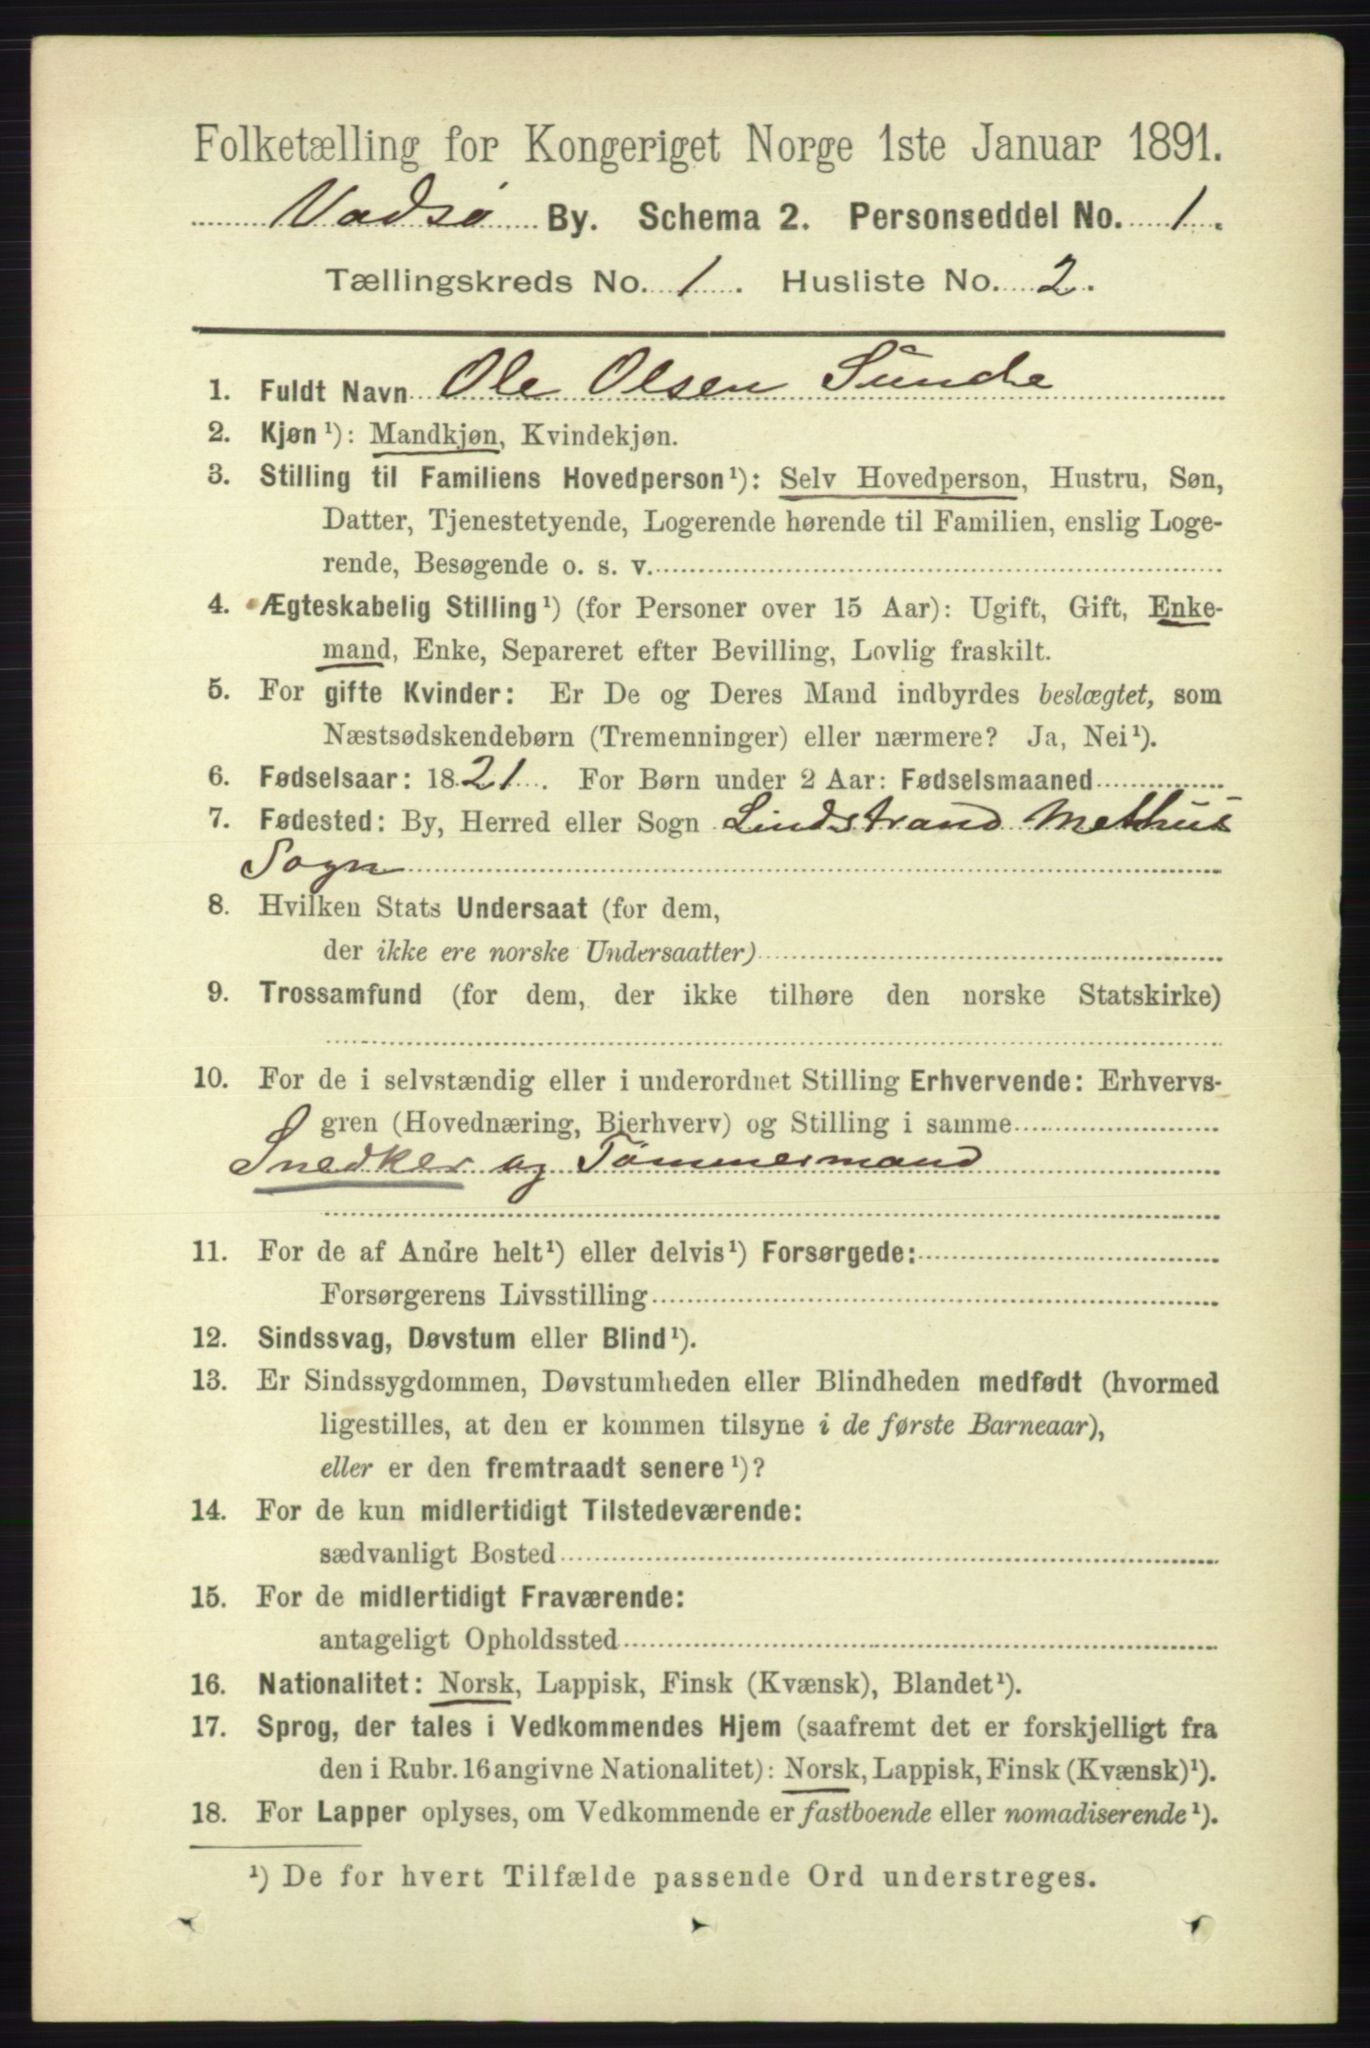 Folketælling for Kongeriget Norge 1ste Januar 1891.
Vadsø By. Schema 2. Personseddel No. 1.
Tællingskreds No. 1. Husliste No. 2.
1. Fuldt Navn Ole Olsen Sunde
2. Kjøn¹): Mandkjøn, Kvindekjøn.
3. Stilling til Familiens Hovedperson¹): Selv Hovedperson, Hustru, Søn,
Datter, Tjenestetyende, Logerende hørende til Familien, enslig Loge-
rende, Besøgende o. s. v.
4. Ægteskabelig Stilling¹) (for Personer over 15 Aar): Ugift, Gift, Enke-
mand, Enke, Separeret efter Bevilling, Lovlig fraskilt.
5. For gifte Kvinder: Er De og Deres Mand indbyrdes beslægtet, som
Næstsødskendebørn (Tremenninger) eller nærmere? Ja, Nei¹).
6. Fødselsaar: 1821. For Børn under 2 Aar: Fødselsmaaned
7. Fødested: By, Herred eller Sogn Lindstrand Methus
Sogn
8. Hvilken Stats Undersaat (for dem,
der ikke ere norske Undersaatter)
9. Trossamfund (for dem, der ikke tilhøre den norske Statskirke)
10. For de i selvstændig eller i underordnet Stilling Erhvervende: Erhvervs-
gren (Hovednæring, Bierhverv) og Stilling i samme
Snedker og Tømmermand
11. For de af Andre helt¹) eller delvis¹) Forsørgede:
Forsørgerens Livsstilling
12. Sindssvag, Døvstum eller Blind¹).
13. Er Sindssygdommen, Døvstumheden eller Blindheden medfødt (hvormed
ligestilles, at den er kommen tilsyne i de første Barneaar),
eller er den fremtraadt senere¹)?
14. For de kun midlertidigt Tilstedeværende:
sædvanligt Bosted
15. For de midlertidigt Fraværende:
antageligt Opholdssted
16. Nationalitet: Norsk, Lappisk, Finsk (Kvænsk), Blandet¹).
17. Sprog, der tales i Vedkommendes Hjem (saafremt det er forskjelligt fra
den i Rubr. 16 angivne Nationalitet): Norsk, Lappisk, Finsk (Kvænsk)¹).
18. For Lapper oplyses, om Vedkommende er fastboende eller nomadiserende¹).
¹) De for hvert Tilfælde passende Ord understreges.